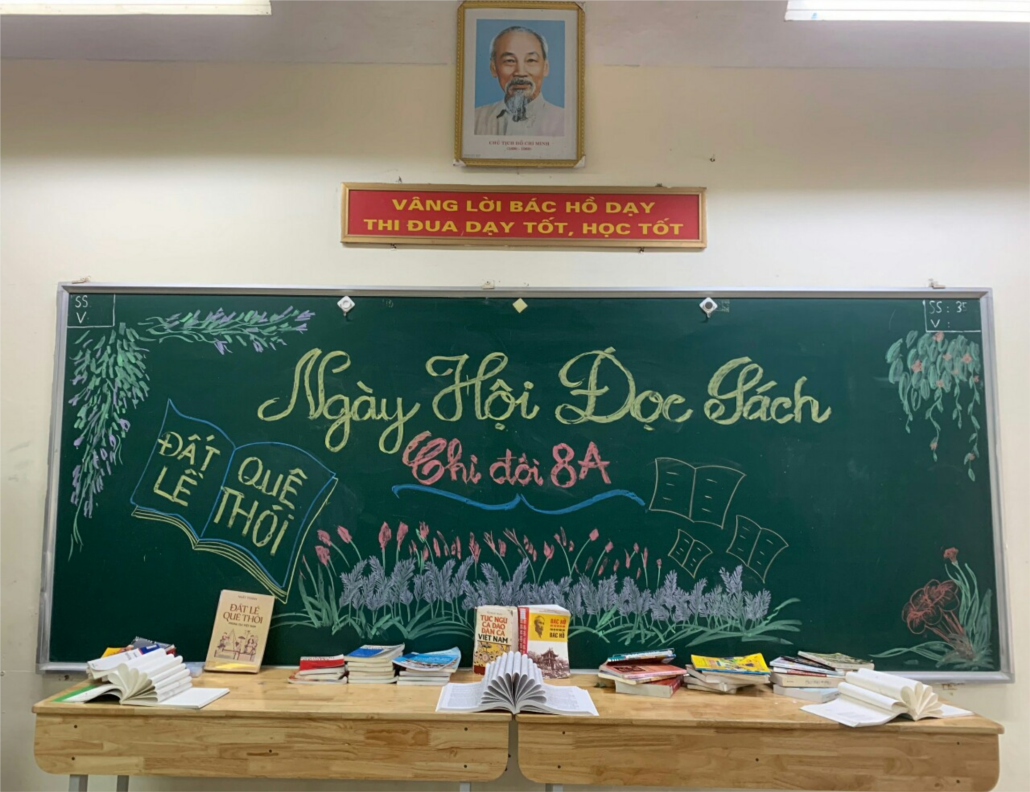 CHỦ TỊCH HỒ CHÍ MINH
(1890 - 1969)
VÂNG LỜI BÁC HỒ DẠY
THI ĐUA DẠY TỐT, HỌC TỐT
SS
V
SS : 35
V :
Ngày Hội Đọc Sách
Chi đội 8A
ĐẤT QUÊ
LỀ THÓI
ĐẤT LỀ
QUÊ THÓI
TỤC NGỮ
CA DAO
DÂN CA
VIỆT NAM
BÁC HỒ
BÁC HỒ